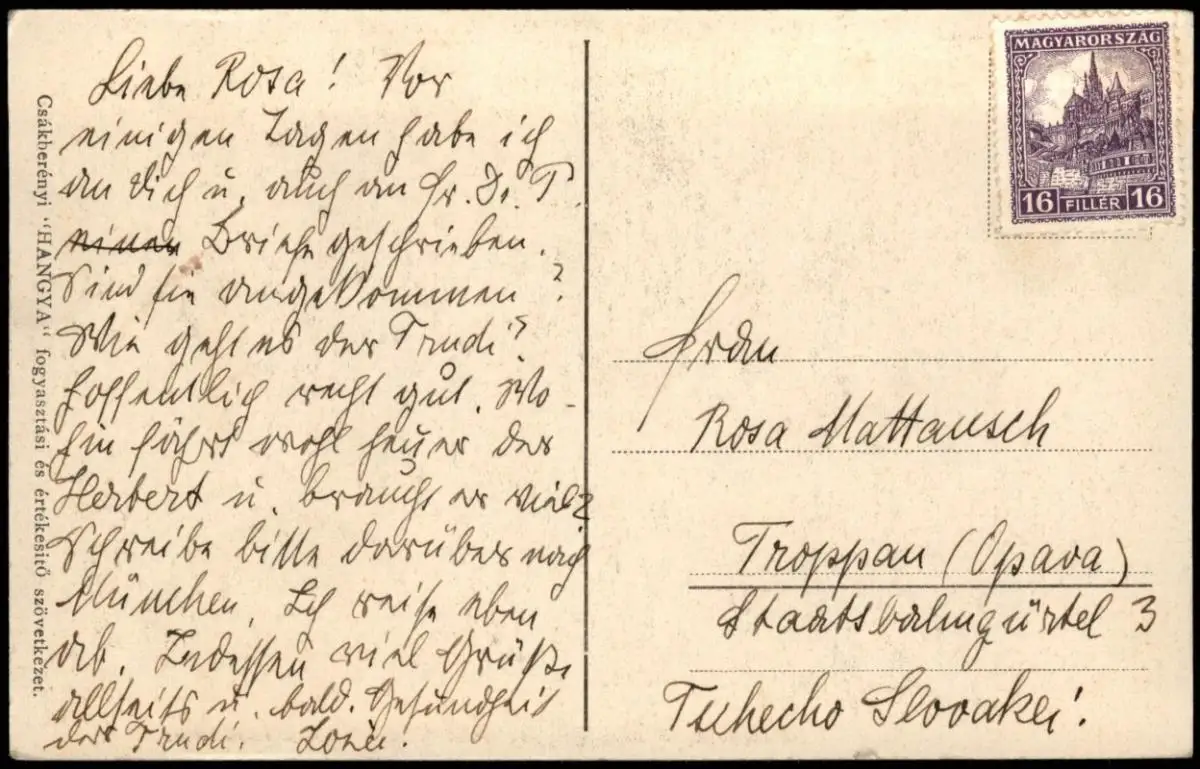 Liebe Rosa! Vor
einigen Tagen habe ich
an Dich u. auch an Hr. Dr. T.
einen Briefe geschrieben.
Sind sie angekommen?
Wie geht es der Trudi?
Hoffentlich recht gut. Wo-
hin fährt wohl heuer der
Herbert u. braucht er viel?
Schreibe bitte darüber nach
München. Ich reise eben
ab. Indessen viel Grüße
allseits u. bald. Gesundheit
der Trudi.
Csákberényi "HANGYA" fogyasztási és értékesitő szövetkezet.
MAGYARORSZÁG
16 FILLÉR 16
Frau
Rosa Mattausch
Troppau (Opava)
Staatsbahngürtel 3
Tschecho Slovakei!